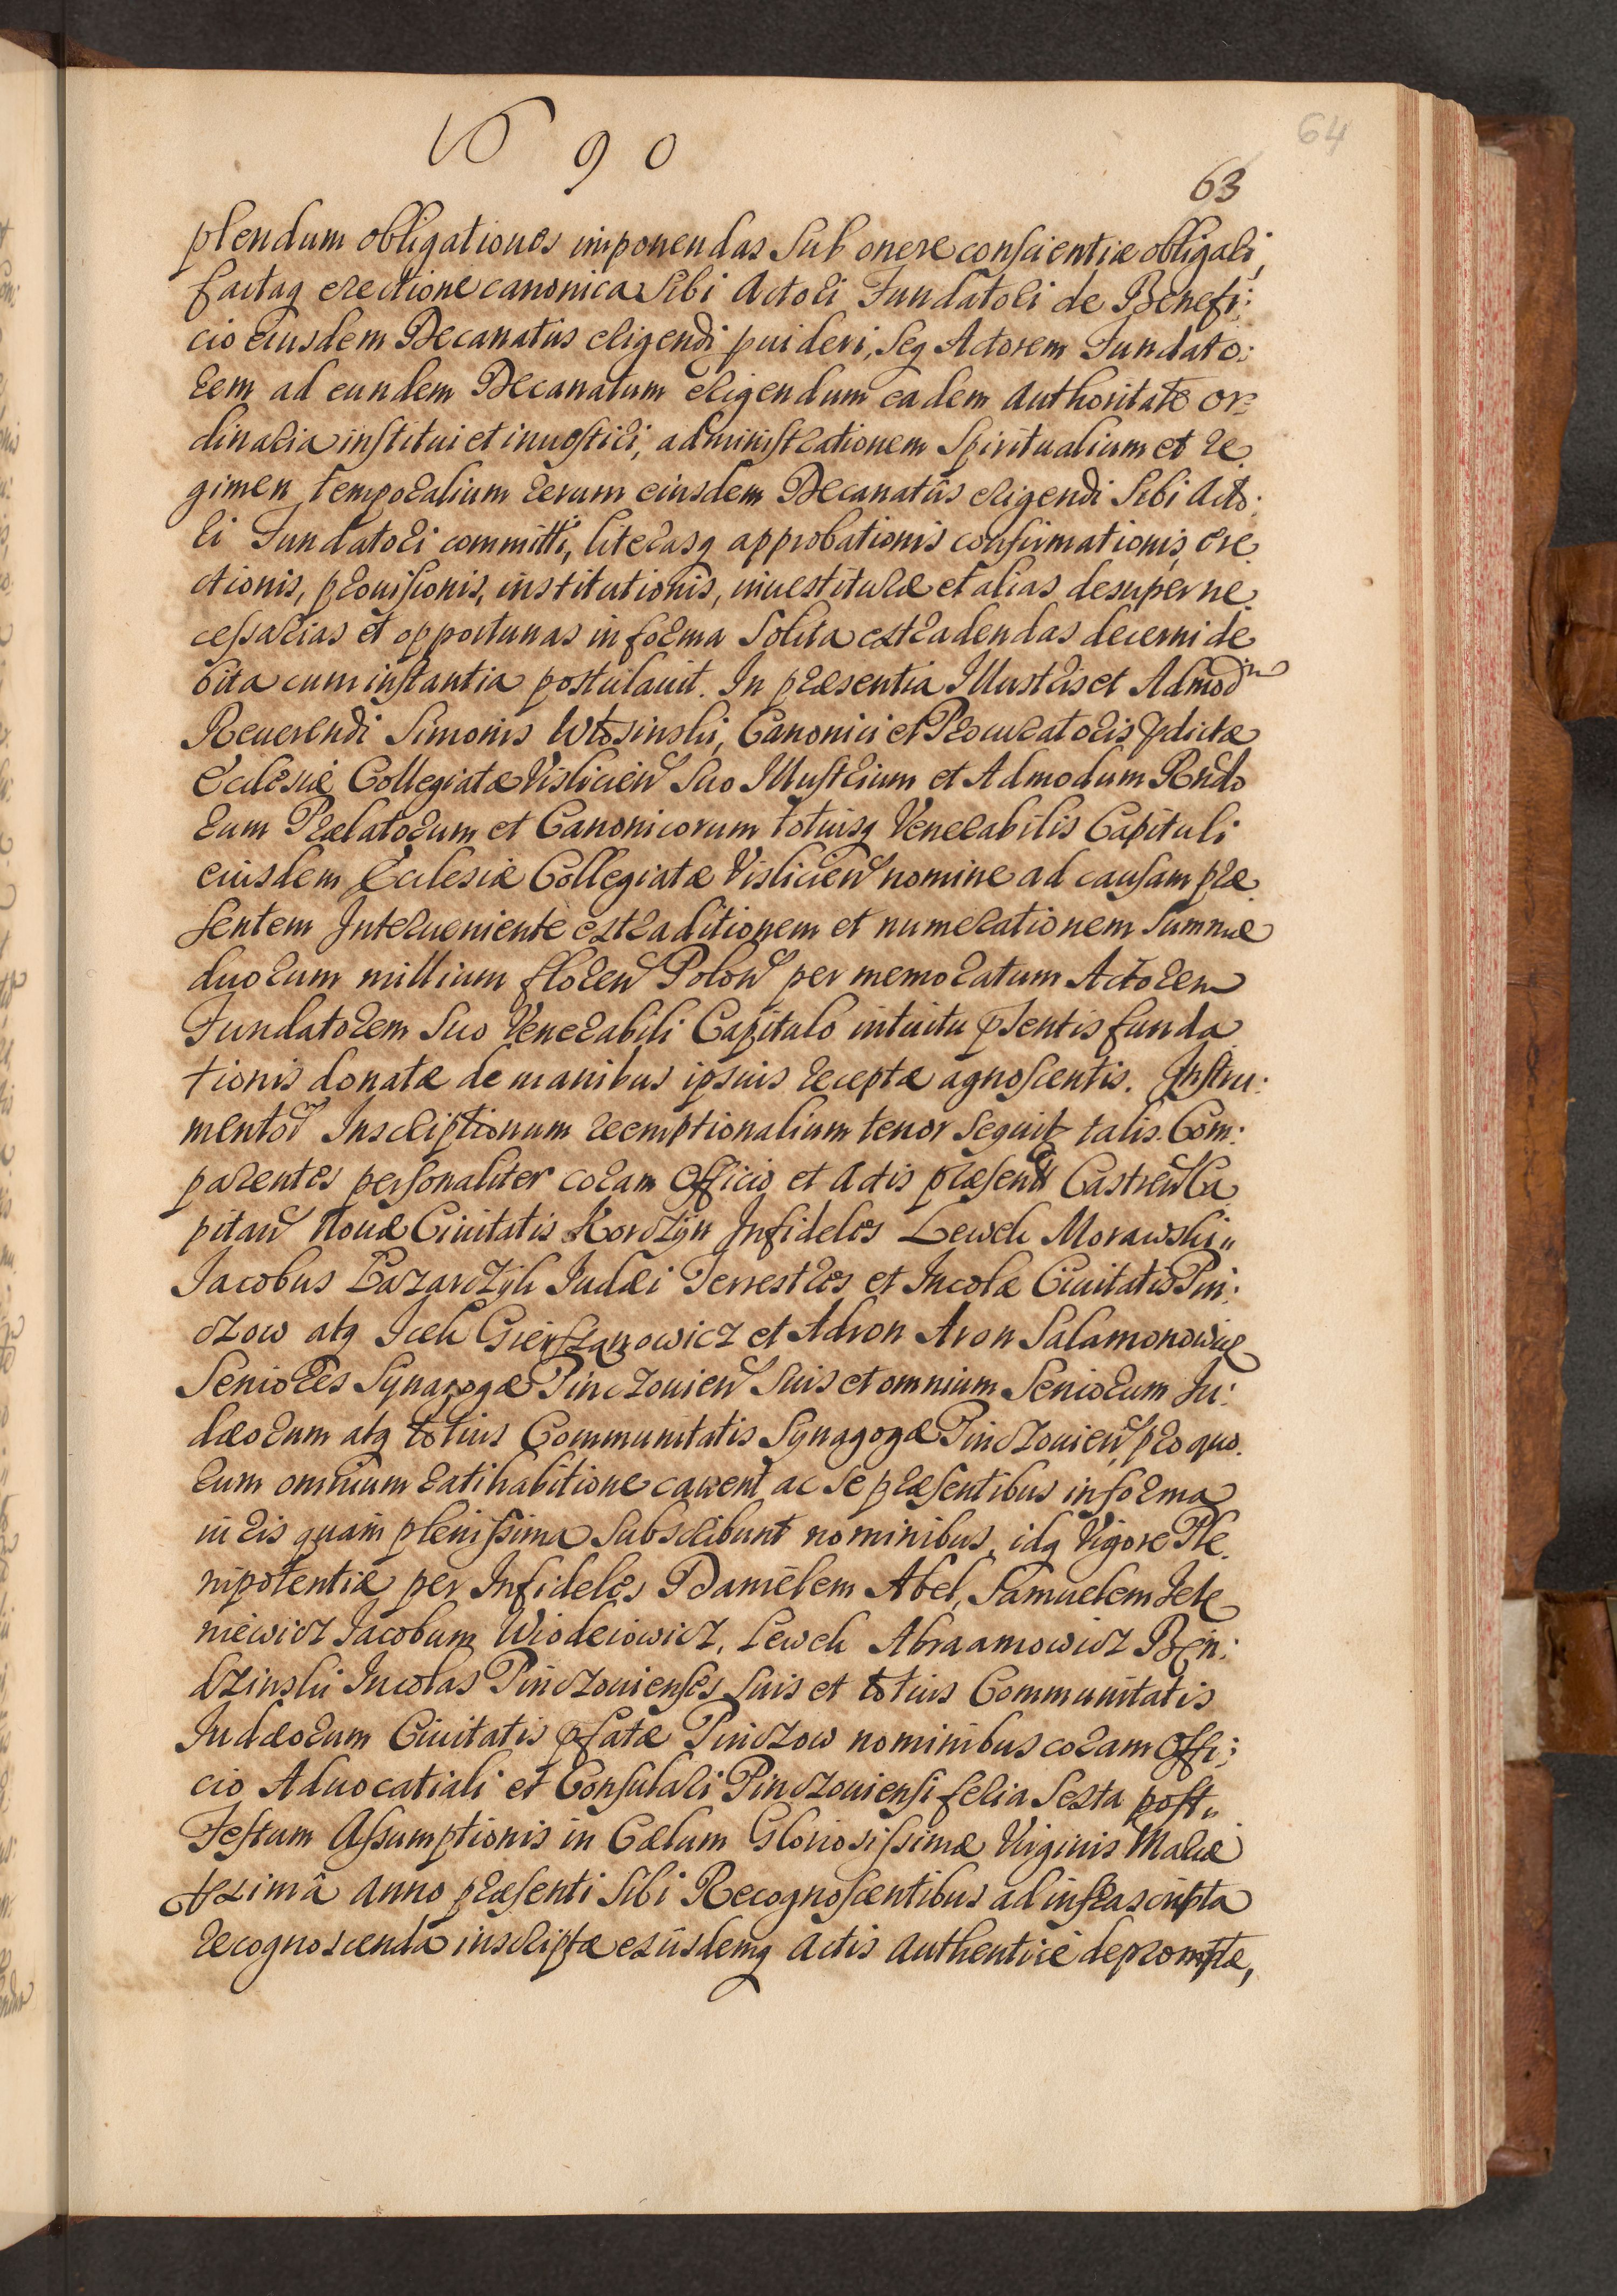 1690
64
63
plendum obligationes imponendas sub onere conscientiæ obligari,
factaq erectione canonica sibi Actori Fundatori de Benefi:
cio eiusdem Decanatus erigendi puideri, seq Actorem Fundato:
rem ad eundem Decanatum erigendum eadem Authoritate or:
dinaria institui et inuestiri, administrationem Spiritualium et re
gimen temporalium rerum eiusdem Decanatûs erigendi sibi Acto:
ri Fundatori committi, literasq approbationis confirmationis, ere
ctionis, prouisionis, institutionis, inuestituræ et alias desuper ne
cessarias et opportunas in forma solita extradendas decerni de
bita cum instantia postulauit. In præsentia Illustris et Admod
Reuerendi Simonis Wtosinski, Canonici et Procuratoris pdictæ
Ecclesiæ Collegiatæ Vislicien suo Illustrium et Admodum Rndo
rum Prælatorum et Canonicorum totiusq Venerabilis Capituli
eiusdem Ecclesiæ Collegiatæ Vislicien nomine ad causam præ
sentem Interueniente extraditionem et numerationem summæ
duorum millium floren Polon per memoratum Actorem
Fundatorem suo Venerabili Capitulo intuitu psentis funda
tionis donatæ de manibus ipsius receptæ agnoscentis. Instru:
mentor Inscriptionum reemptionalium tenor sequit talis. Com:
parentes personaliter coram Officio et Actis præsent Castren Ca
pitan Nouæ Ciuitatis Korczyn Infideles Lewek Morawski
Jacobus Lazarczyk Iudæi Terrestres et Incolæ Ciuitatis Pin:
czow atq Icek Gierszanowicz et Adron Aron Salamonowicz
Seniores Synagogæ Pinczouien suis et omnium Seniorum Iu:
dæorum atq totius Communitatis Synagogæ Pinczouien, pro quo
rum omnium ratihabitione cauent ac se præsentibus in forma
iuris quam plenissima subscribunt nominibus, idq vigore Ple
nipotentiæ per Infideles Danielem Abel, Samuelem Jele
niewicz Jacobum Wioderowicz, Lewek Abraamowicz Ben:
dzinski Incolas Pinczouienses suis et totius Communitatis
Iudæorum Ciuitatis pfatæ Pinczow nominibus coram Offi:
cio Aduocatiali et Consulari Pinczouiensi feria sexta post
Festum Assumptionis in Cælum Gloriosissimæ Virginis Mariæ
pximâ anno præsenti sibi Recognoscentibus ad infrascripta
recognoscenda inscriptæ exiisdemq Actis authenticè depromptæ,